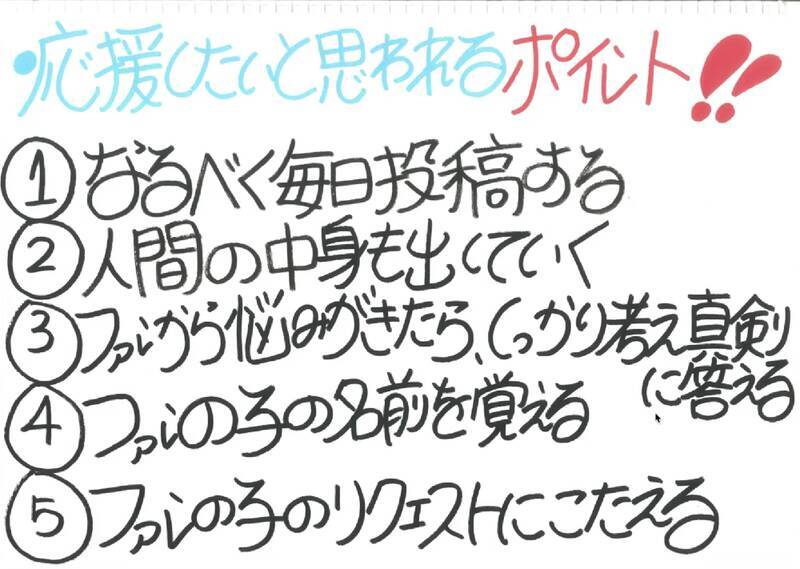 ・応援したいと思われるポイント!!
① なるべく毎日投稿する
② 人間の中身も出していく
③ ファンから悩みがきたら、しっかり考え真剣
に答える
④ ファンの子の名前を覚える
⑤ ファンの子のリクエストにこたえる